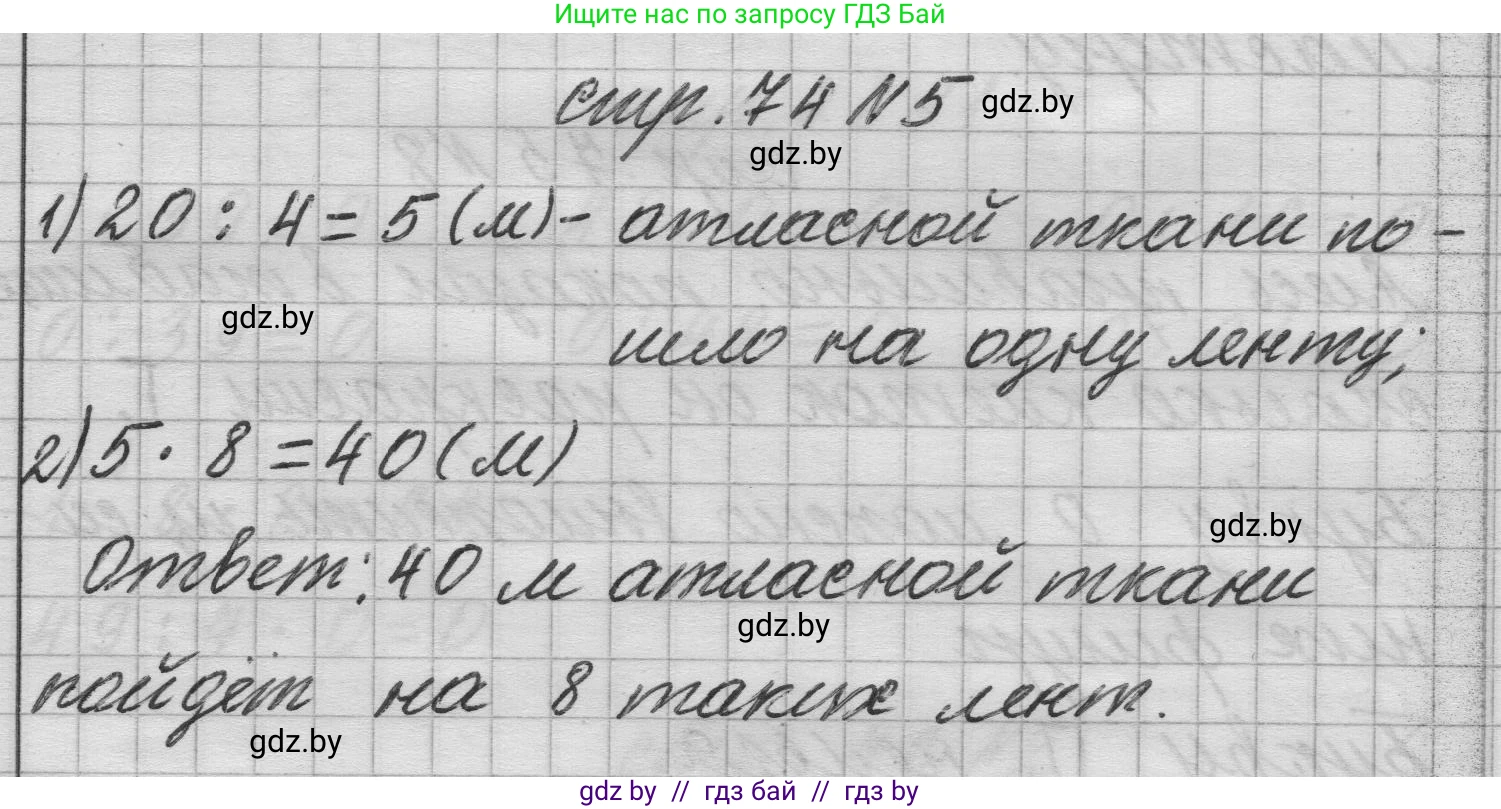 Ищите нас по запросу ГДЗ Бай
стр. 74 №5 gdz.by
gdz.by
1) 20 : 4 = 5 (м) - атласной ткани по-
gdz.by
шло на одну ленту;
2) 5 · 8 = 40 (м)
gdz.by
Ответ: 40 м атласной ткани
gdz.by
пойдёт на 8 таких лент.
gdz.by
gdz by // гдз бай // гдз by